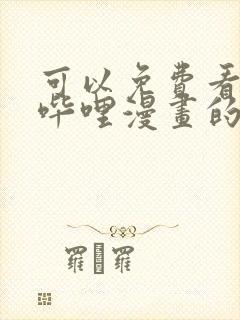 可以免費看
哔哩漫畫的
羅 羅